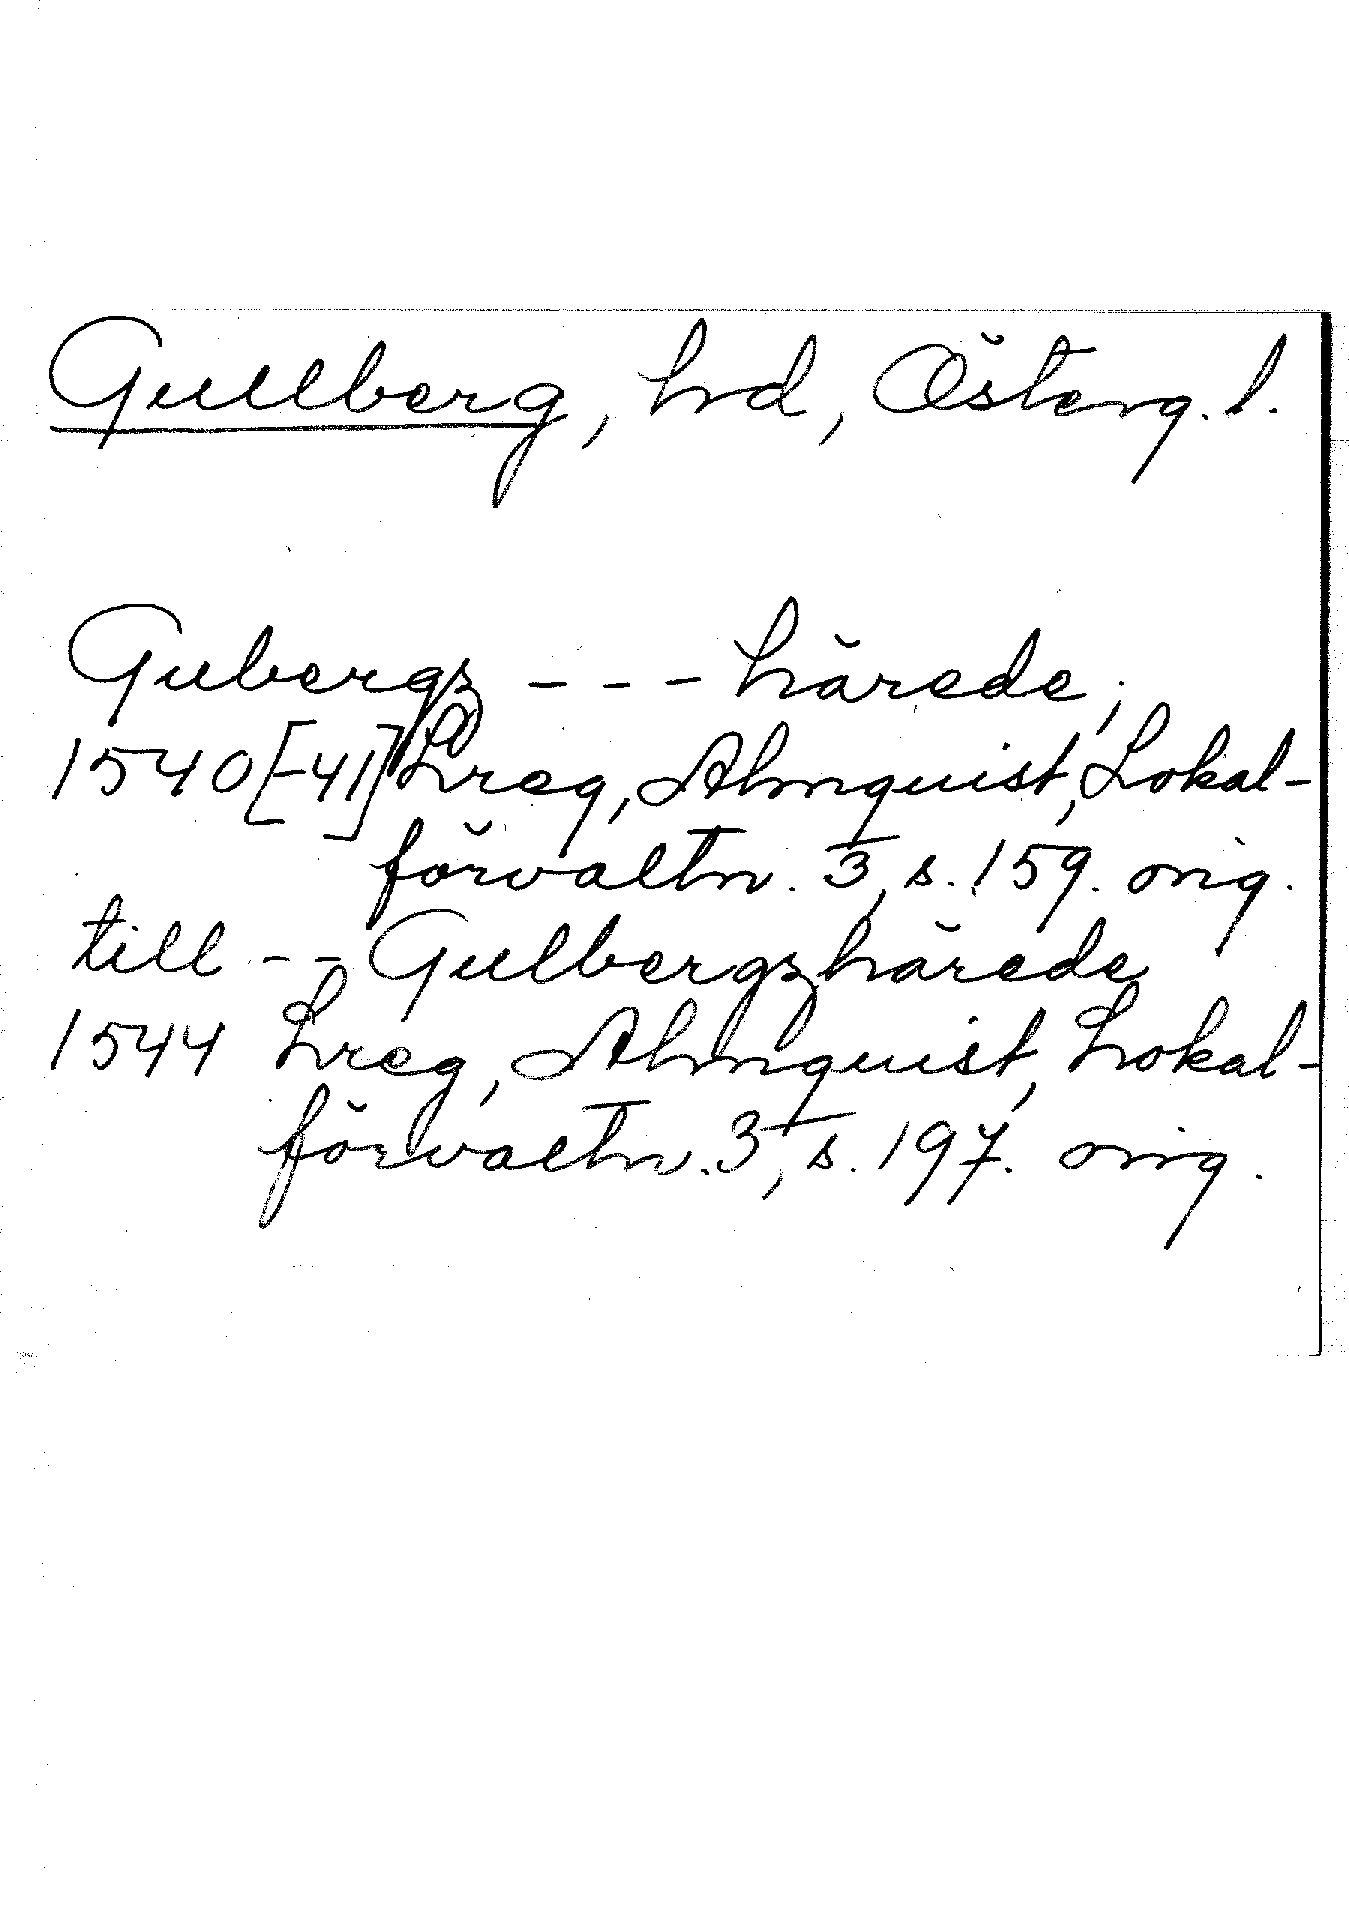 Gullberg, hd, Österg. l.
Gubergz --- härede,
1540[-41] Lreg, Almquist, Lokal-
förvaltn. 3, s. 159. orig.
till -- Gulbergzhärede
1544 Lreg, Almquist, Lokal-
förvaltn. 3, s. 197. orig.